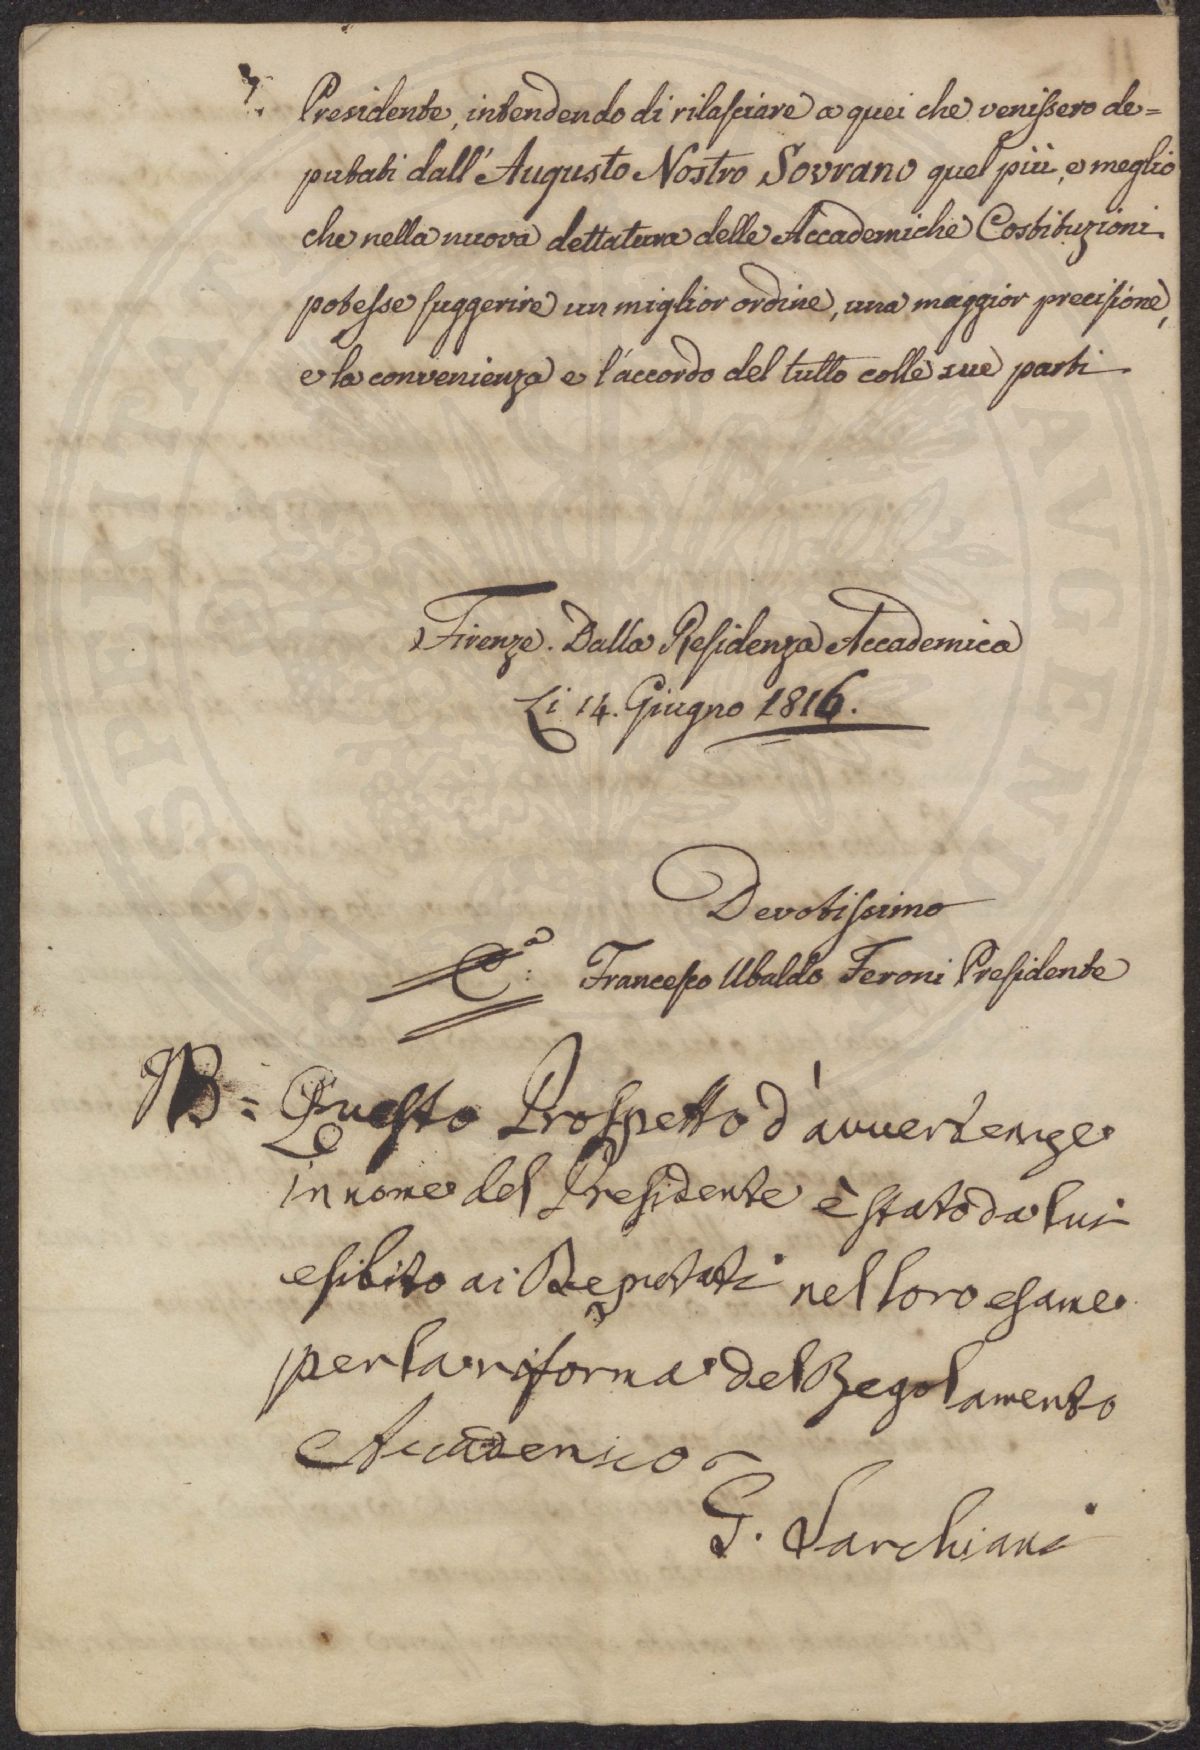 7. Presidente, intendendo di rilasciare a quei che venissero de=
putati dall'Augusto Nostro Sovrano quel più, e meglio
che nella nuova dettatura delle Accademiche Costituzioni
potesse suggerire un miglior ordine, una maggior precisione,
e la convenienza e l'accordo del tutto colle sue parti.
Firenze. Dalla Residenza Accademica
Li 14. Giugno 1816.
Devotissimo
Francesco Ubaldo Feroni Presidente
NB = Questo Prospetto d'avvertenze
in nome del Presidente è stato da lui
esibito ai Deputati nel loro esame
per la riforma del Regolamento
Accademico
G. Sarchiani